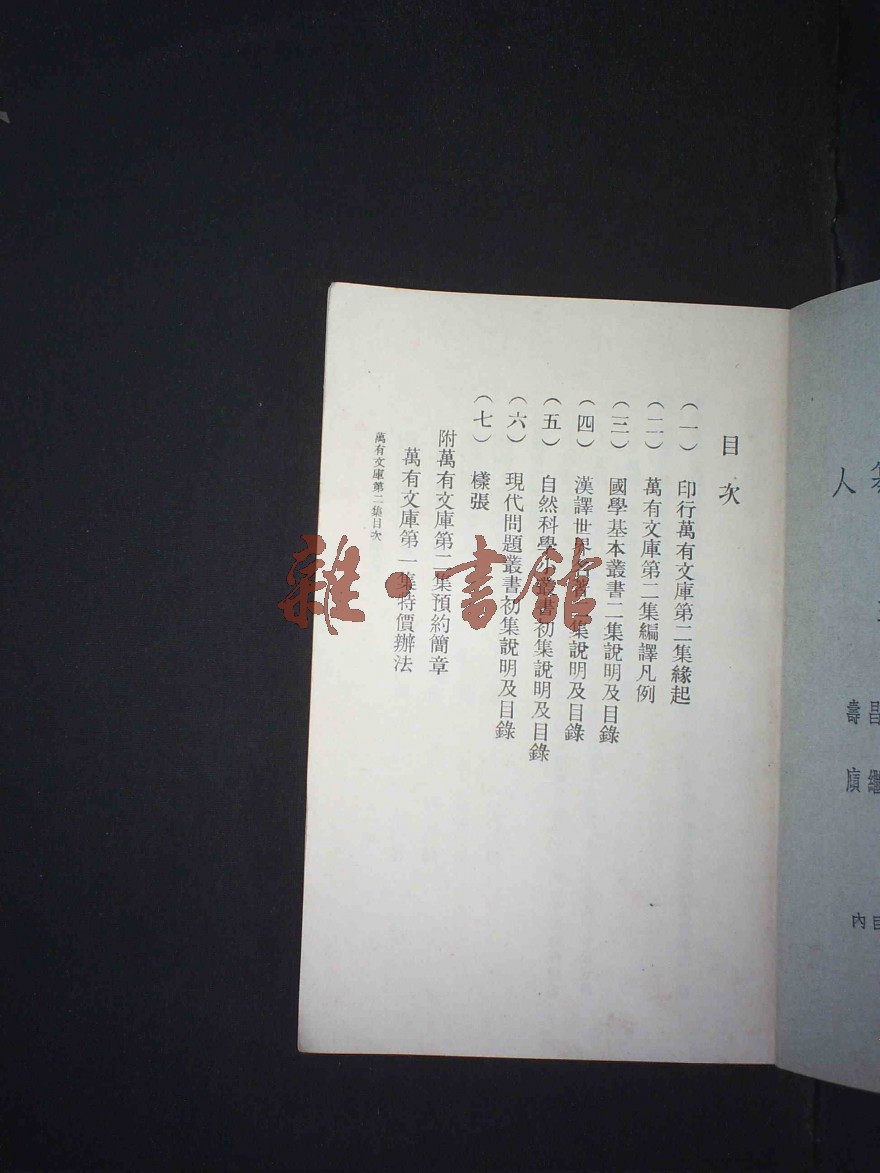 目次
（一）　印行萬有文庫第二集緣起
（二）　萬有文庫第二集編譯凡例
（三）　國學基本叢書二集說明及目錄
（四）　漢譯世界名著二集說明及目錄
（五）　自然科學小叢書初集說明及目錄
（六）　現代問題叢書初集說明及目錄
（七）　樣張
附萬有文庫第二集預約簡章
萬有文庫第一集特價辦法
萬有文庫第二集目次
雜·書館
人
昌繼
壽頎
目
內